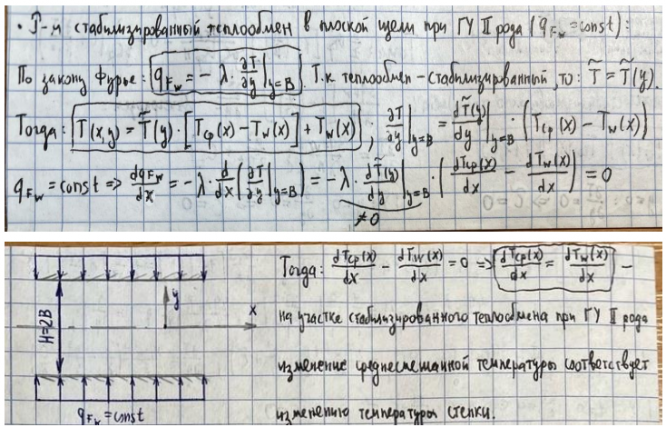 • Т-м стабилизированный теплообмен в плоской щели при ГУ II рода (q_Fw = const):
По закону Фурье: q_Fw = -λ · ∂T/∂y|y=B. Т.к теплообмен - стабилизированный, то: T̃ = T̃(y).
Тогда: T(x,y) = T̃(y) · [Tср(x) - Tw(x)] + Tw(x) ; ∂T/∂y|y=B = dT̃(y)/dy|y=B · (Tср(x) - Tw(x))
q_Fw = const => dq_Fw/dx = -λ · d/dx(∂T/∂y|y=B) = -λ · dT̃(y)/dy|y=B · (dTср(x)/dx - dTw(x)/dx) = 0
≠0
Тогда: dTср(x)/dx - dTw(x)/dx = 0 => dTср(x)/dx = dTw(x)/dx -
на участке стабилизированного теплообмена при ГУ II рода
изменение среднесмешанной температуры соответствует
изменению температуры стенки.
y
x
H=2B
q_Fw = const